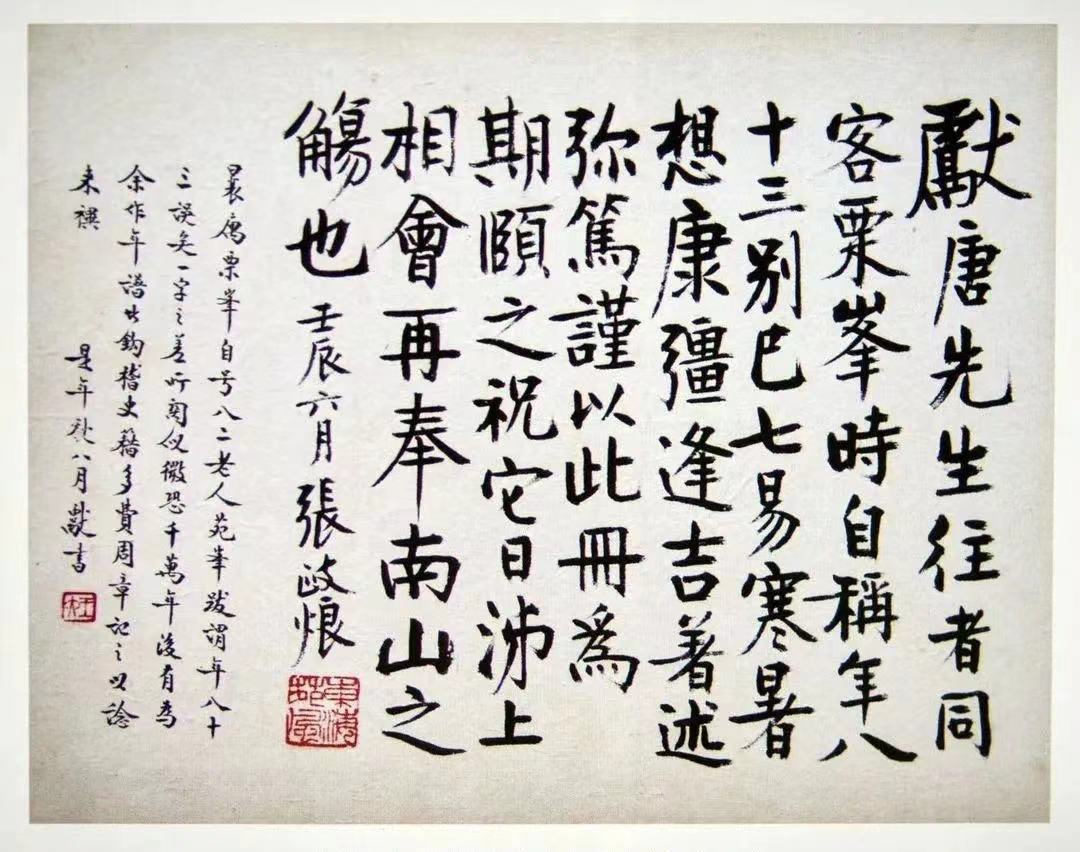 獻唐先生往者同
客栗峯時自稱年八
十三别巳七易寒暑
想康彊逢吉著述
弥篤謹以此冊為
期頤之祝它日泲上
相會再奉南山之
觴也 壬辰六月 張政烺
曩寓栗峯自号八二老人苑峯跋謂年八十
三誤矣一字之差所關似微恐千萬年後有為
余作年譜者鈎稽史籍多費周章記之以諗
來禩 是年秋八月獻書